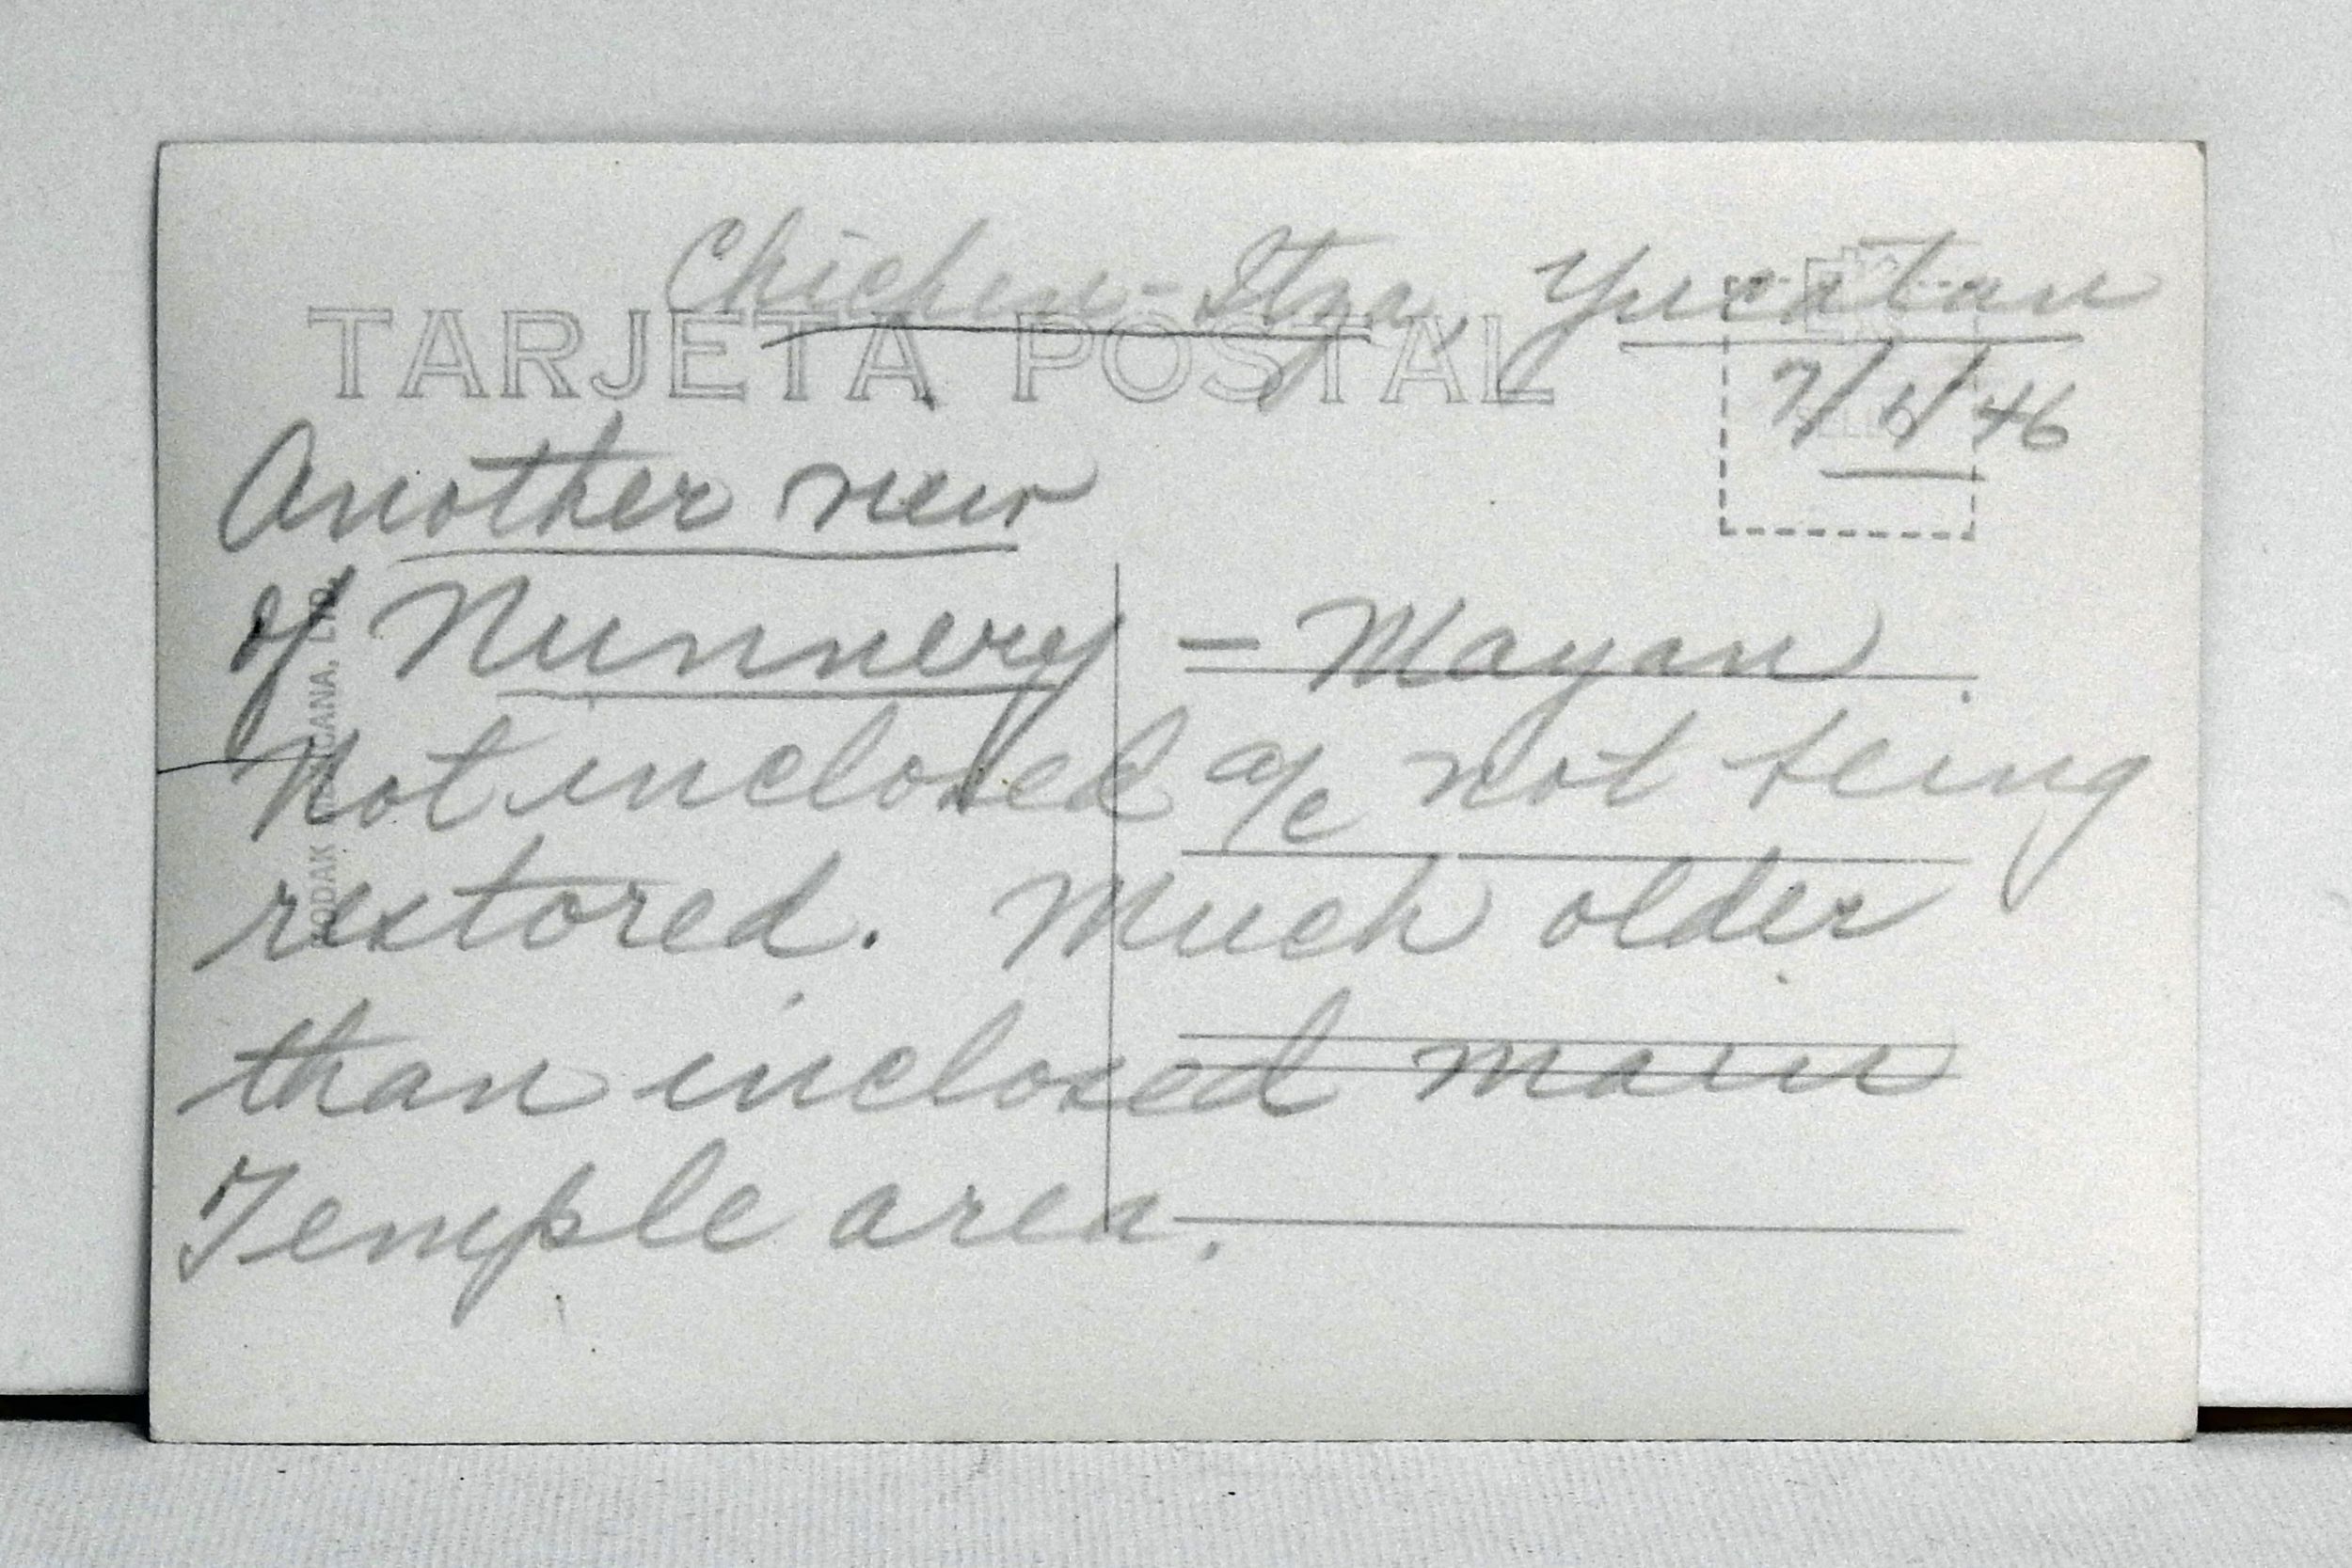 Chichen-Itza, Yucatan
TARJETA POSTAL
7/6/46
Another new
of Nunnery = Mayan.
Not inclosed a/c not being
restored. Much older
than inclosed main
Temple area.
KODAK MEXICANA, LTD.